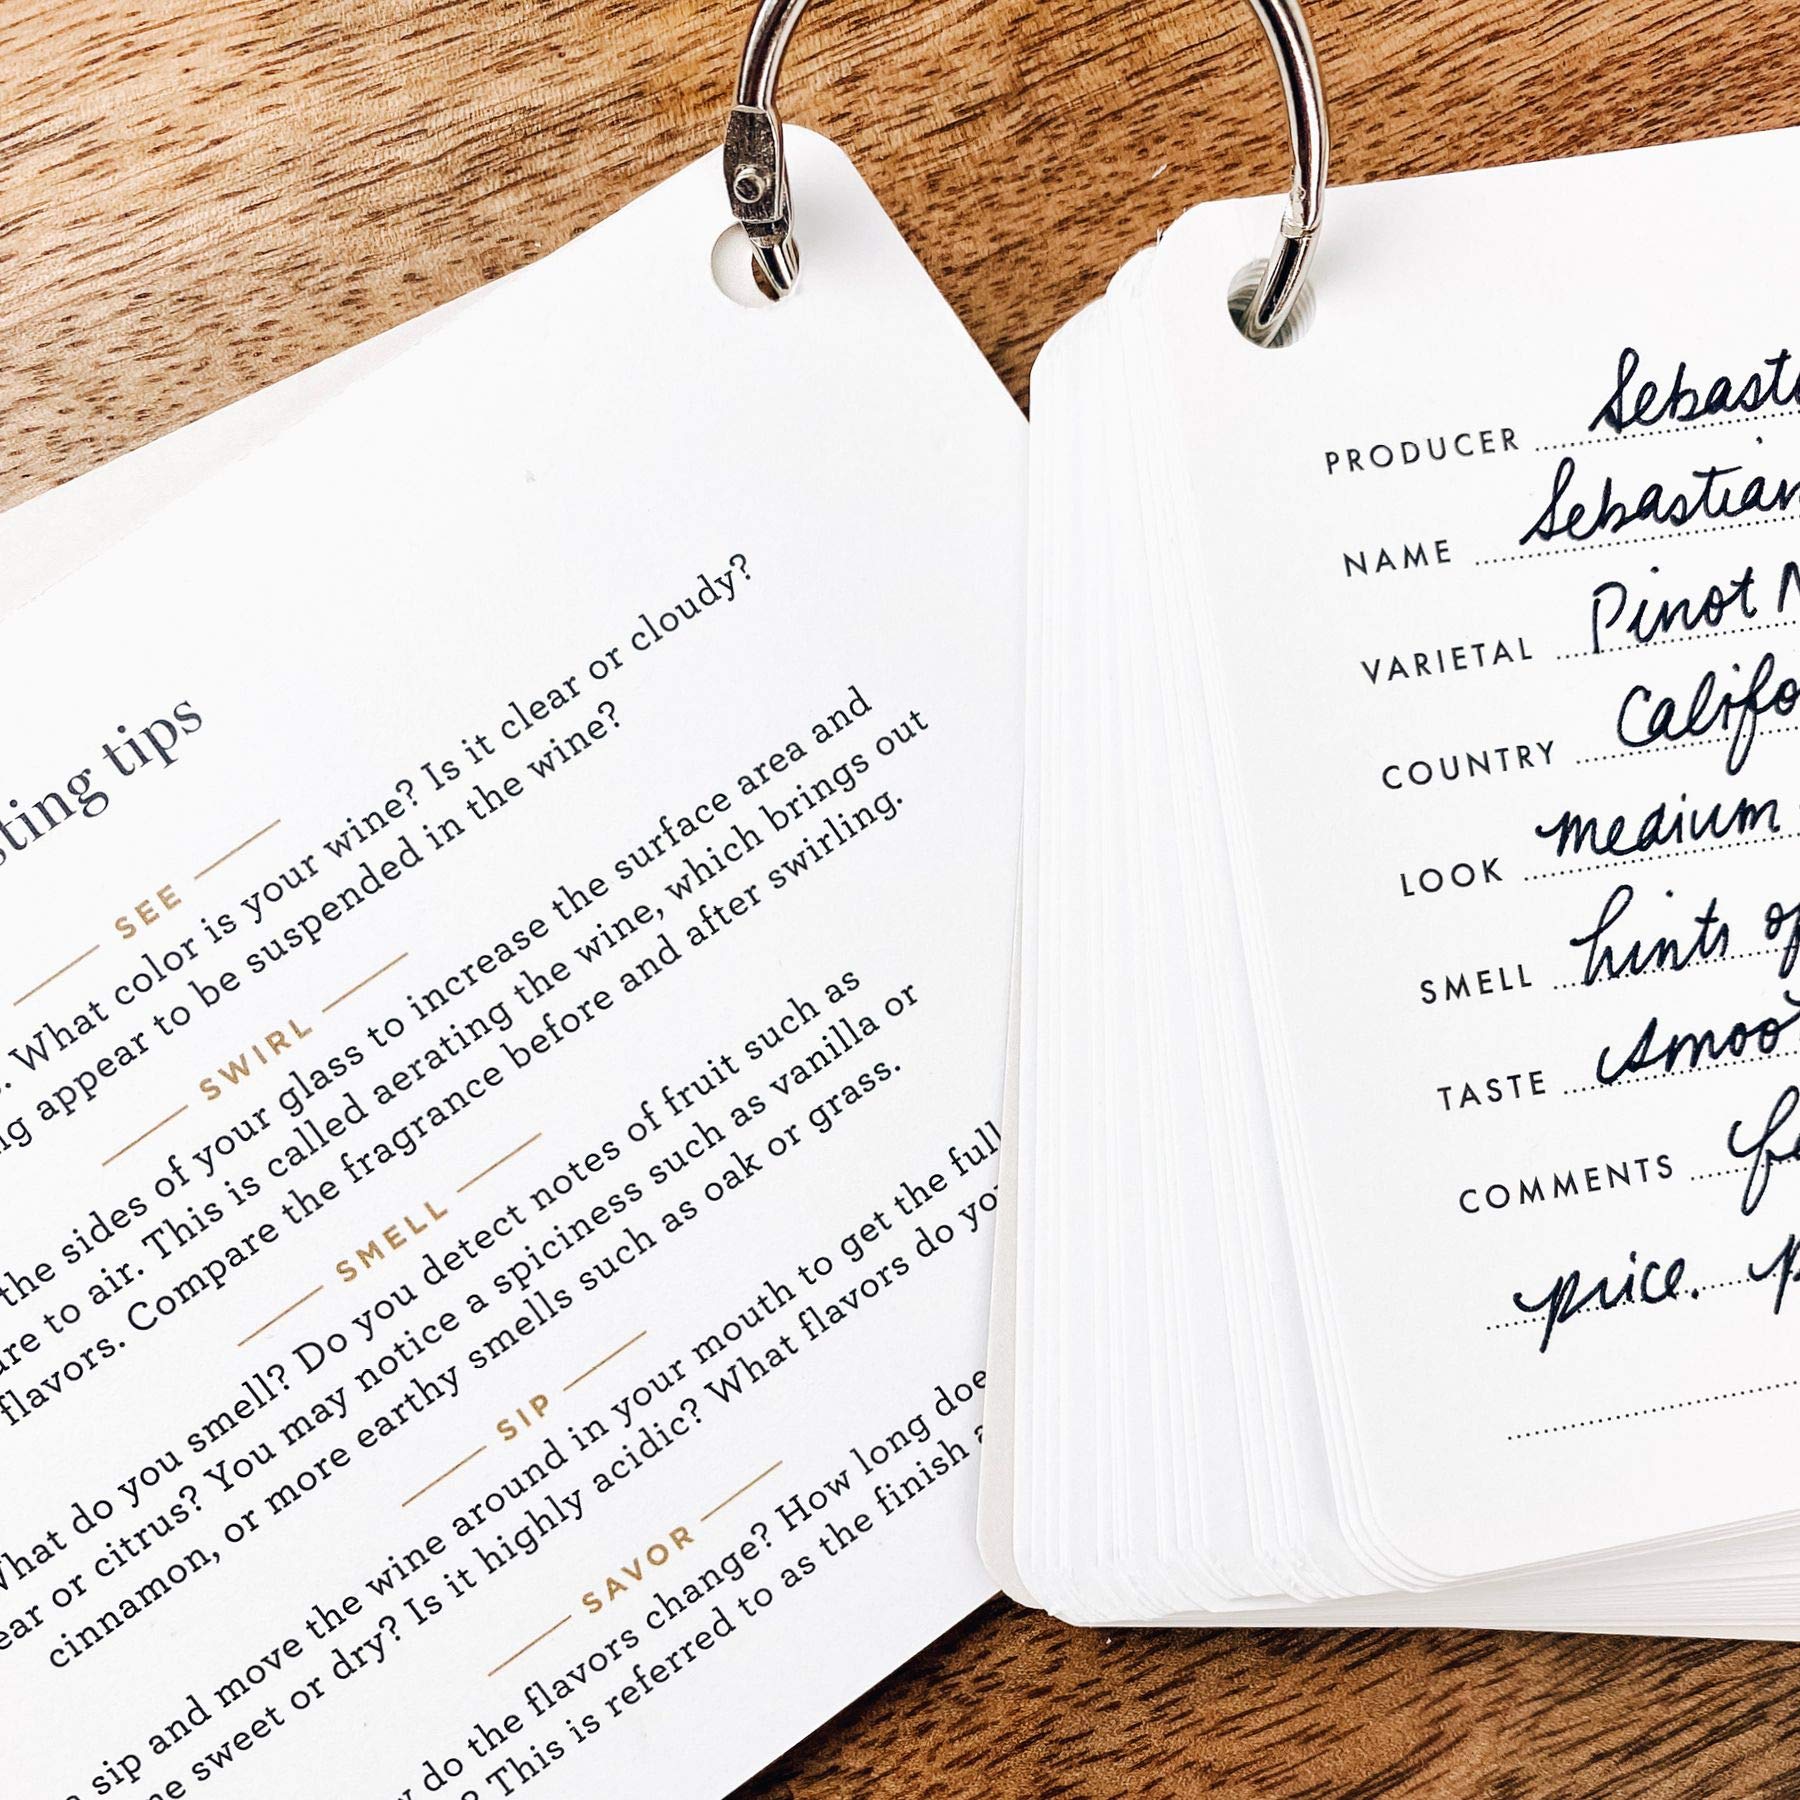 tips
SEE
What color is your wine? Is it clear or cloudy?
appear to be suspended in the wine?
SWIRL
the sides of your glass to increase the surface area and
to air. This is called aerating the wine, which brings out
flavors. Compare the fragrance before and after swirling.
SMELL
What do you smell? Do you detect notes of fruit such as
or citrus? You may notice a spiciness such as vanilla or
cinnamon, or more earthy smells such as oak or grass.
SIP
sip and move the wine around in your mouth to get the full
sweet or dry? Is it highly acidic? What flavors do
SAVOR
do the flavors change? How long
This is referred to as the finish
PRODUCER
NAME
VARIETAL Pinot
COUNTRY
LOOK medium
SMELL hints
TASTE
COMMENTS
price.